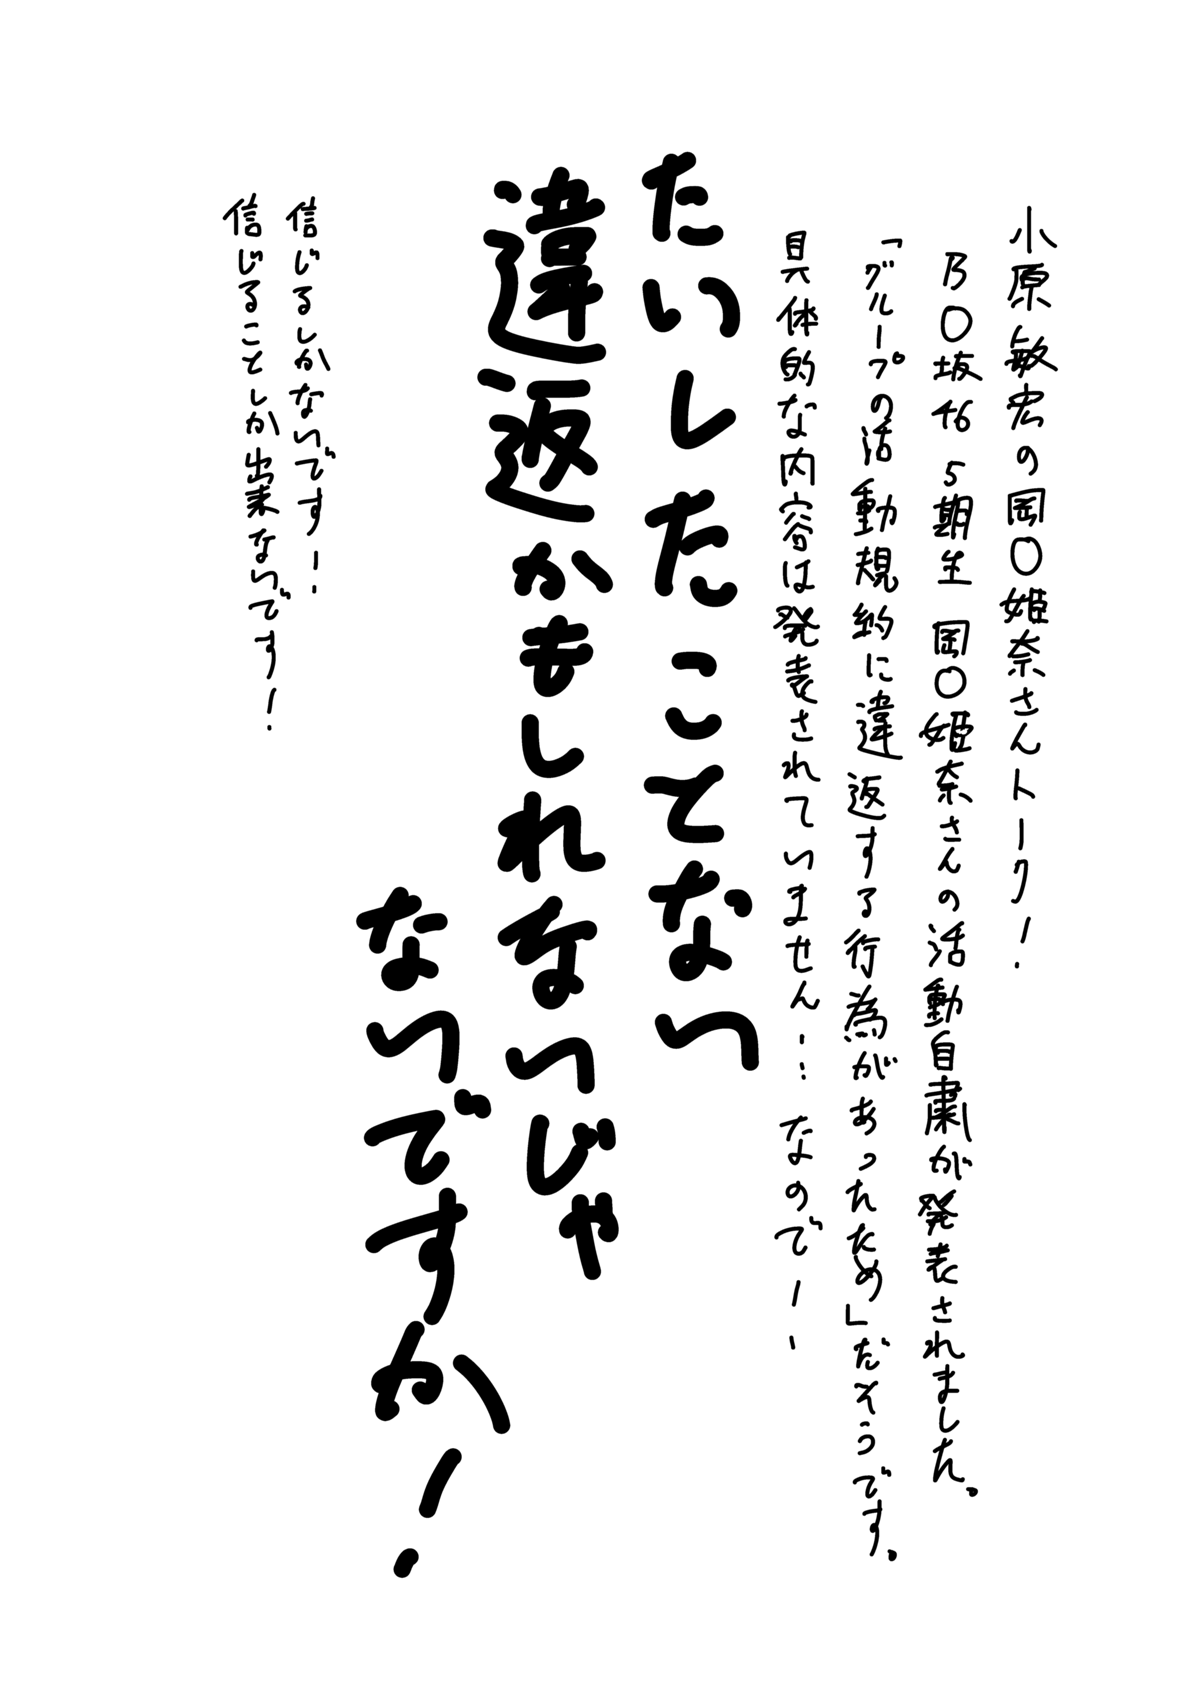 小原敏宏の岡〇姫奈さんトーク！
乃〇坂46 5期生 岡〇姫奈さんの活動自粛が発表されました。
「グループの活動規約に違返する行為があったため」だそうです。
具体的な内容は発表されていません！：なのでー！
たいしたことない
違返かもしれないじゃ
ないですか！
信じるしかないです！
信じることしか出来ないです！